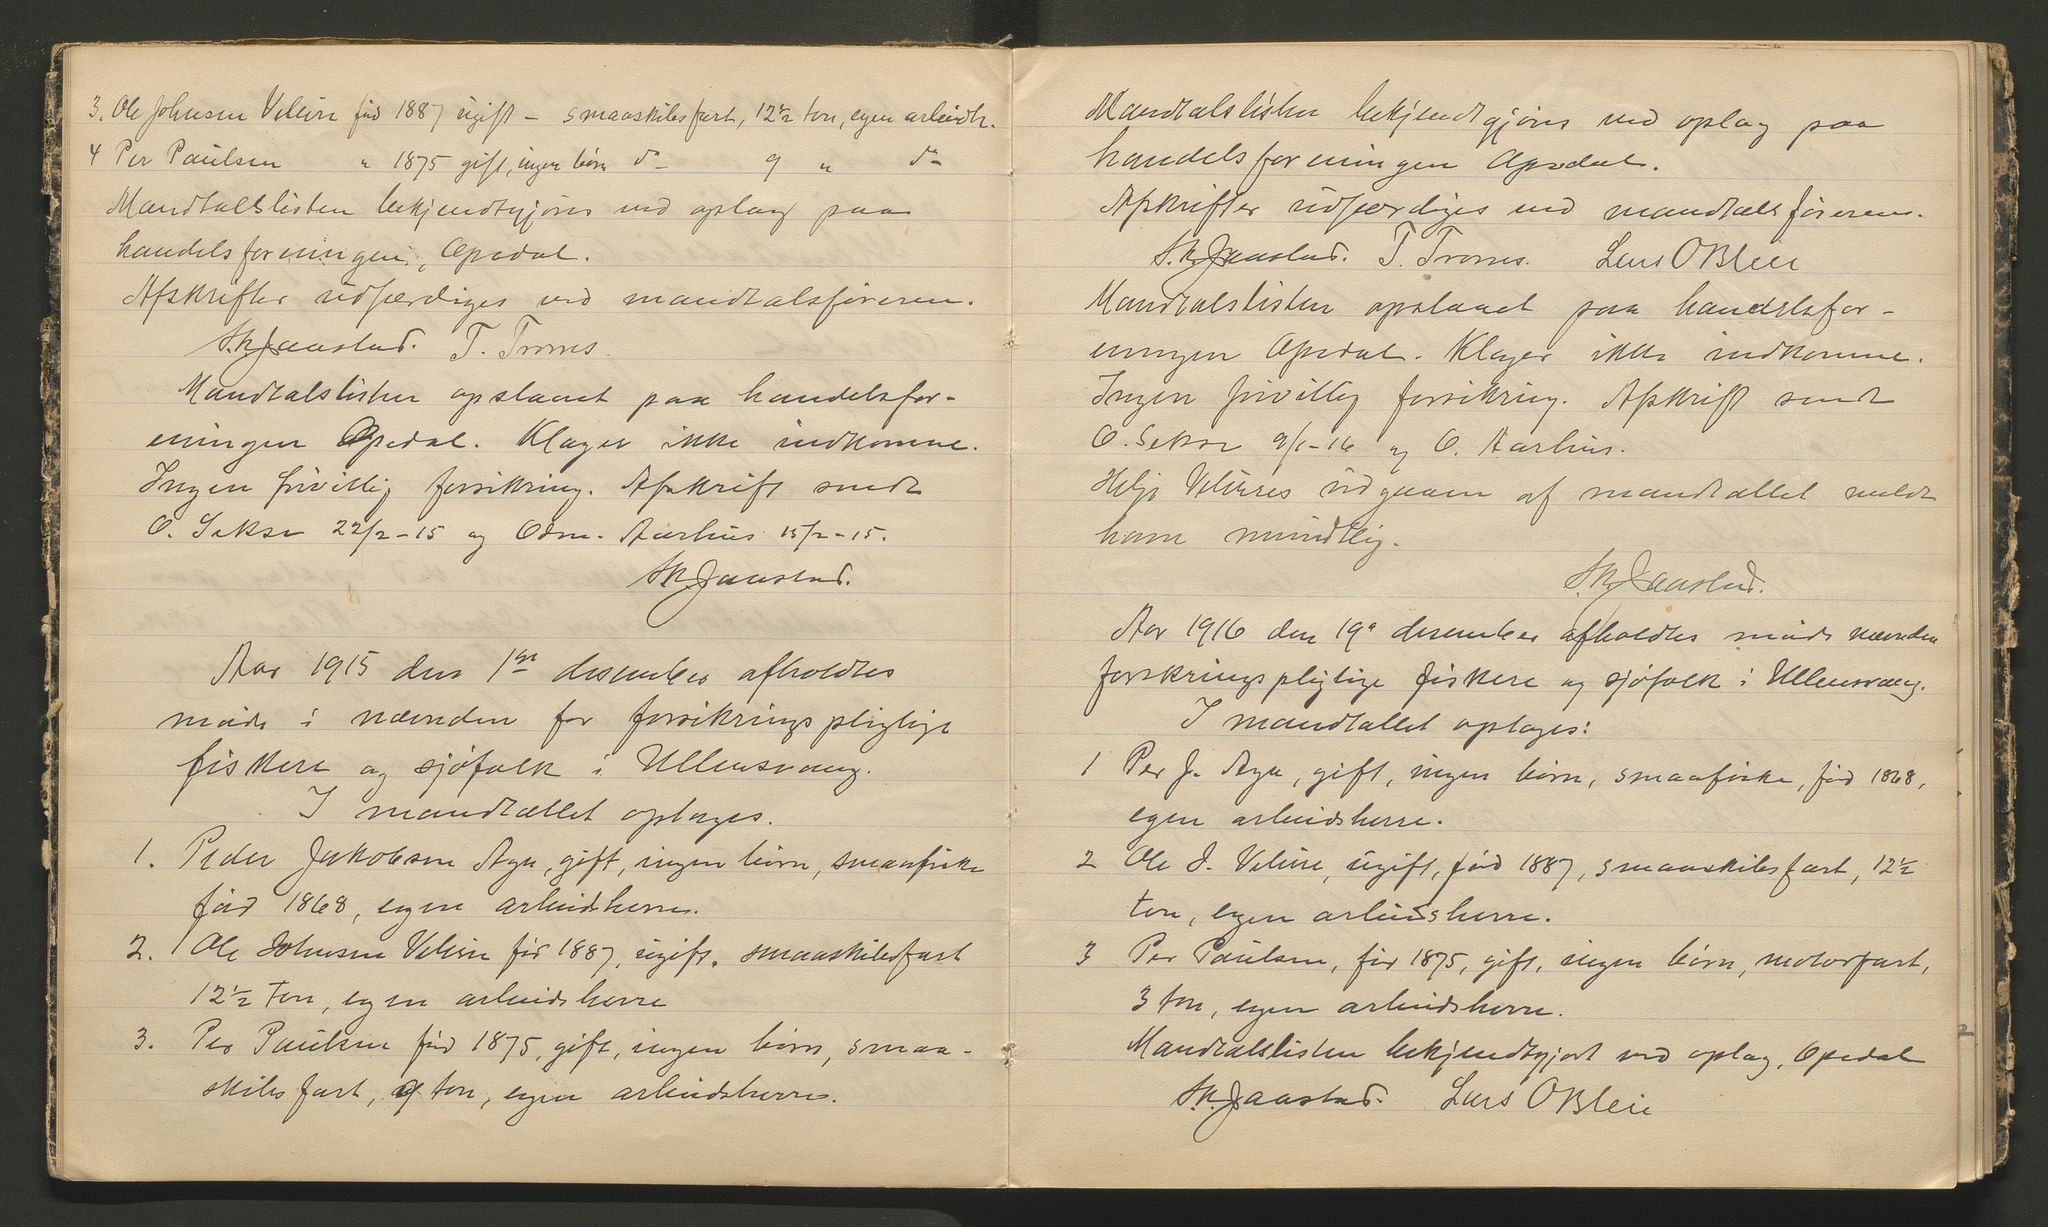 3. Ole Johnsen Velure fød 1887 ugift – smaaskibsfart, 12½ ton, egen arbeidh.
4 Per Paulsen " 1875 gift, ingen børn do – 9 " do
Mandtalslisten bekjendtgjøres ved oplag paa
handelsforeningen, Opedal.
Afskrifter udfærdiges ved mandtalsføreren.
S. Jaastad. T. Troms.
Mandtalslisten opslaaet paa handelsfor-
eningen Opedal. Klager ikke indkomne.
Ingen frivillig forsikring. Afskrift sendt
O. Sekse 22/2-15 og Odm. Aarhus 15/2-15.
Jaastad.
Aar 1915 den 1ste desember afholdtes
møde i nævnden for forsikringspligtige
fiskere og sjøfolk i Ullensvang.
I mandtallet optages.
1. Peder Jakobsen Aga, gift, ingen børn, smaafiske
fød 1868, egen arbeidsherre.
2. Ole Johnsen Velure fød 1887, ugift, smaaskibsfart
12½ ton, egen arbeidsherre
3. Per Paulsen fød 1875, gift, ingen børn, smaa-
skibsfart, 9 ton, egen arbeidsherre.
Mandtalslisten bekjendtgjøres ved oplag paa
handelsforeningen Opedal.
Afskrifter udfærdiges ved mandtalsføreren.
Jaastad. T. Troms. Lars O Bleie
Mandtalslisten opslaaet paa handelsfor-
eningen Opedal. Klager ikke indkomne.
Ingen frivillig forsikring. Afskrift sendt
O. Sekse 9/1-16 og O. Aarhus.
Helje Velures udgaaen af mandtallet meldt
ham mundtlig.
Jaastad.
Aar 1916 den 19de desember afholdtes møde nævnden
forskringspligtige fiskere og sjøfolk i Ullensvang.
I mandtallet optages:
1 Per J. Aga, gift, ingen børn, smaafiske, fød 1868,
egen arbeidsherre.
2 Ole J. Velure, ugift, fød 1887, smaaskibsfart, 12½
ton, egen arbeidsherre.
3 Per Paulsen, fød 1875, gift, ingen børn, motorfart,
3 ton, egen arbeidsherre.
Mandtalslisten bekjendtgjort ved oplag, Opedal
Jaastad. Lars O Bleie